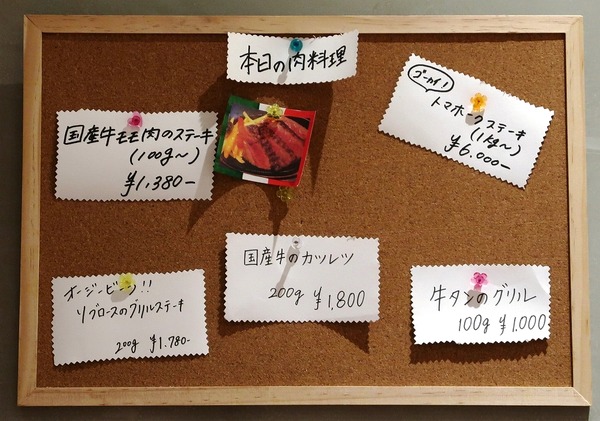 本日の肉料理
国産牛モモ肉のステーキ
(100g〜)
¥1,380-
ゴーカイ!
トマホークステーキ
(1kg〜)
¥6.000-
オージービーフ!!
リブロースのグリルステーキ
200g ¥1.780-
国産牛のカツレツ
200g ¥1,800
牛タンのグリル
100g ¥1.000